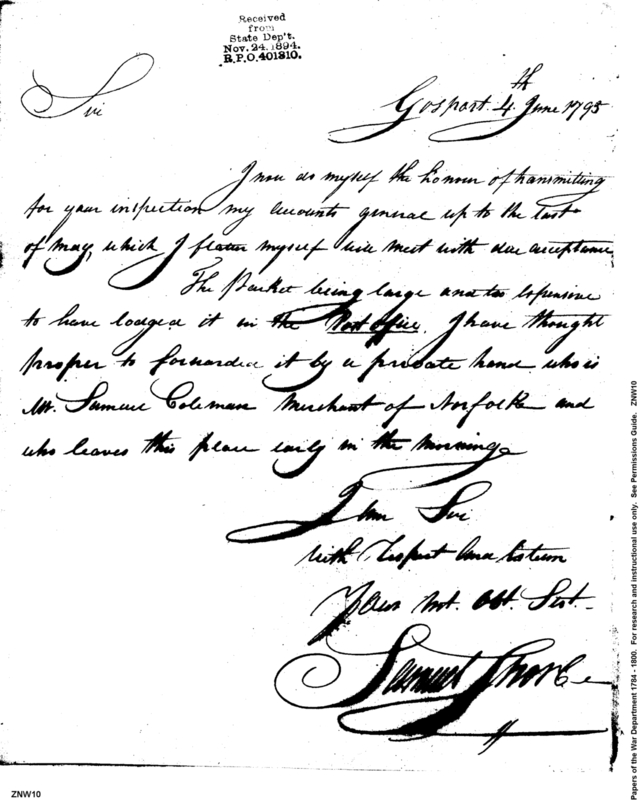 Received
from
State Dep't.
Nov. 24. 1894.
R.P.O. 401310.
Gosport. 4th June 1795
Sir
I now do myself the honour of transmitting
for your inspection my accounts general up to the last
of may, which I flatter myself will meet with due acceptance
The Packet being large and too Expensive
to have lodged it in the Post office, I have thought
proper to forwarded it by a private hand who is
Mr. Samuel Coleman Merchant of Norfolk and
who leaves this place early in the morning
I am Sir
with Respect and Esteem
Your mt. obt. Sert.
Samuel
ZNW10
Papers of the War Department 1784 - 1800. For research and instructional use only. See Permissions Guide. ZNW10